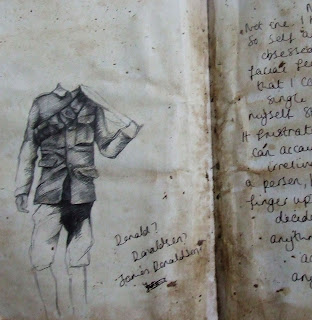 Ronald?
Ronaldson?
James Ronaldson!
Not one! I
so self a
obsessed
facial fe
that I c
single
myself s
It frustrat
can accau
irrelive
a person,
finger up
decide
anything
a
any